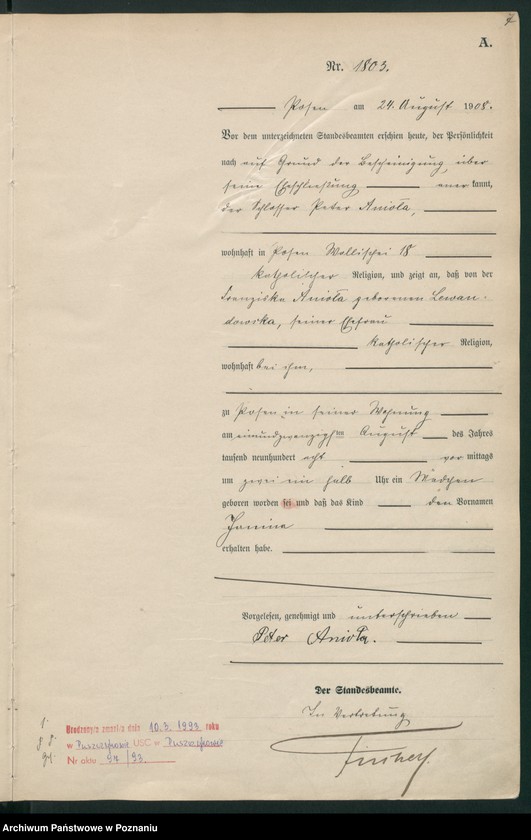 A.
Nr. 1803.
Posen am 24. August 1908.
Vor dem unterzeichneten Standesbeamten erschien heute, der Persönlichkeit
nach auf Grund der Bescheinigung über
seine Eheschließung anerkannt,
der Schlosser Peter Anioła,
wohnhaft in Posen Wallischei 18
katholischer Religion, und zeigt an, daß von der
Franziska Anioła geborenen Lewan-
dowska, seiner Ehefrau
katholischer Religion,
wohnhaft bei ihm,
zu Posen in seiner Wohnung
am einundzwanzigsten August des Jahres
tausend neunhundert acht vormittags
um zwei ein halb Uhr ein Mädchen
geboren worden sei und daß das Kind den Vornamen
Janina
erhalten habe.
Vorgelesen, genehmigt und unterschrieben
Peter Anioła.
Der Standesbeamte.
In Vertretung
Urodzony/a zmarł/a dnia 10.3.1993 roku
w Puszczykowie USC w Puszczykowie
Nr aktu 97/93
Archiwum Państwowe w Poznaniu